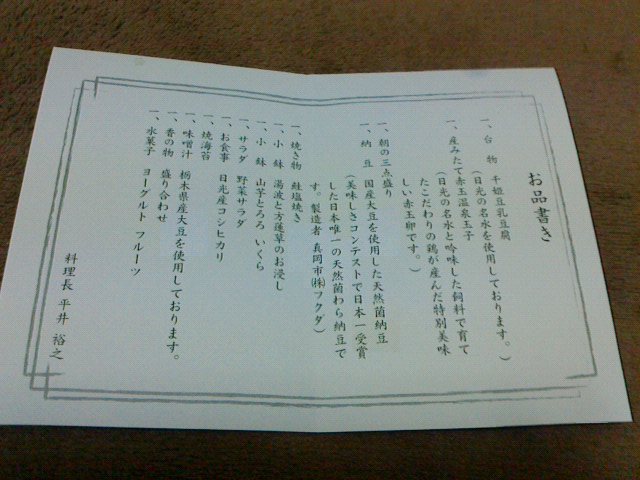 お品書き
一、台 物 千姫豆乳豆腐
(日光の名水を使用しております。)
一、産みたて赤玉温泉玉子
(日光の名水と吟味した飼料で育て
たこだわりの鶏が産んだ特別美味
しい赤玉卵です。)
一、朝の三点盛り
一、納 豆 国産大豆を使用した天然菌納豆
(美味しさコンテストで日本一受賞
した日本唯一の天然菌わら納豆で
す。製造者 真岡市㈱フクダ)
一、焼き物 鮭塩焼き
一、小 鉢 湯波と方蓮草のお浸し
一、小 鉢 山芋とろろ いくら
一、サラダ 野菜サラダ
一、お食事 日光産コシヒカリ
一、焼海苔
一、味噌汁 栃木県産大豆を使用しております。
一、香の物 盛り合わせ
一、水菓子 ヨーグルト フルーツ
料理長 平井 裕之